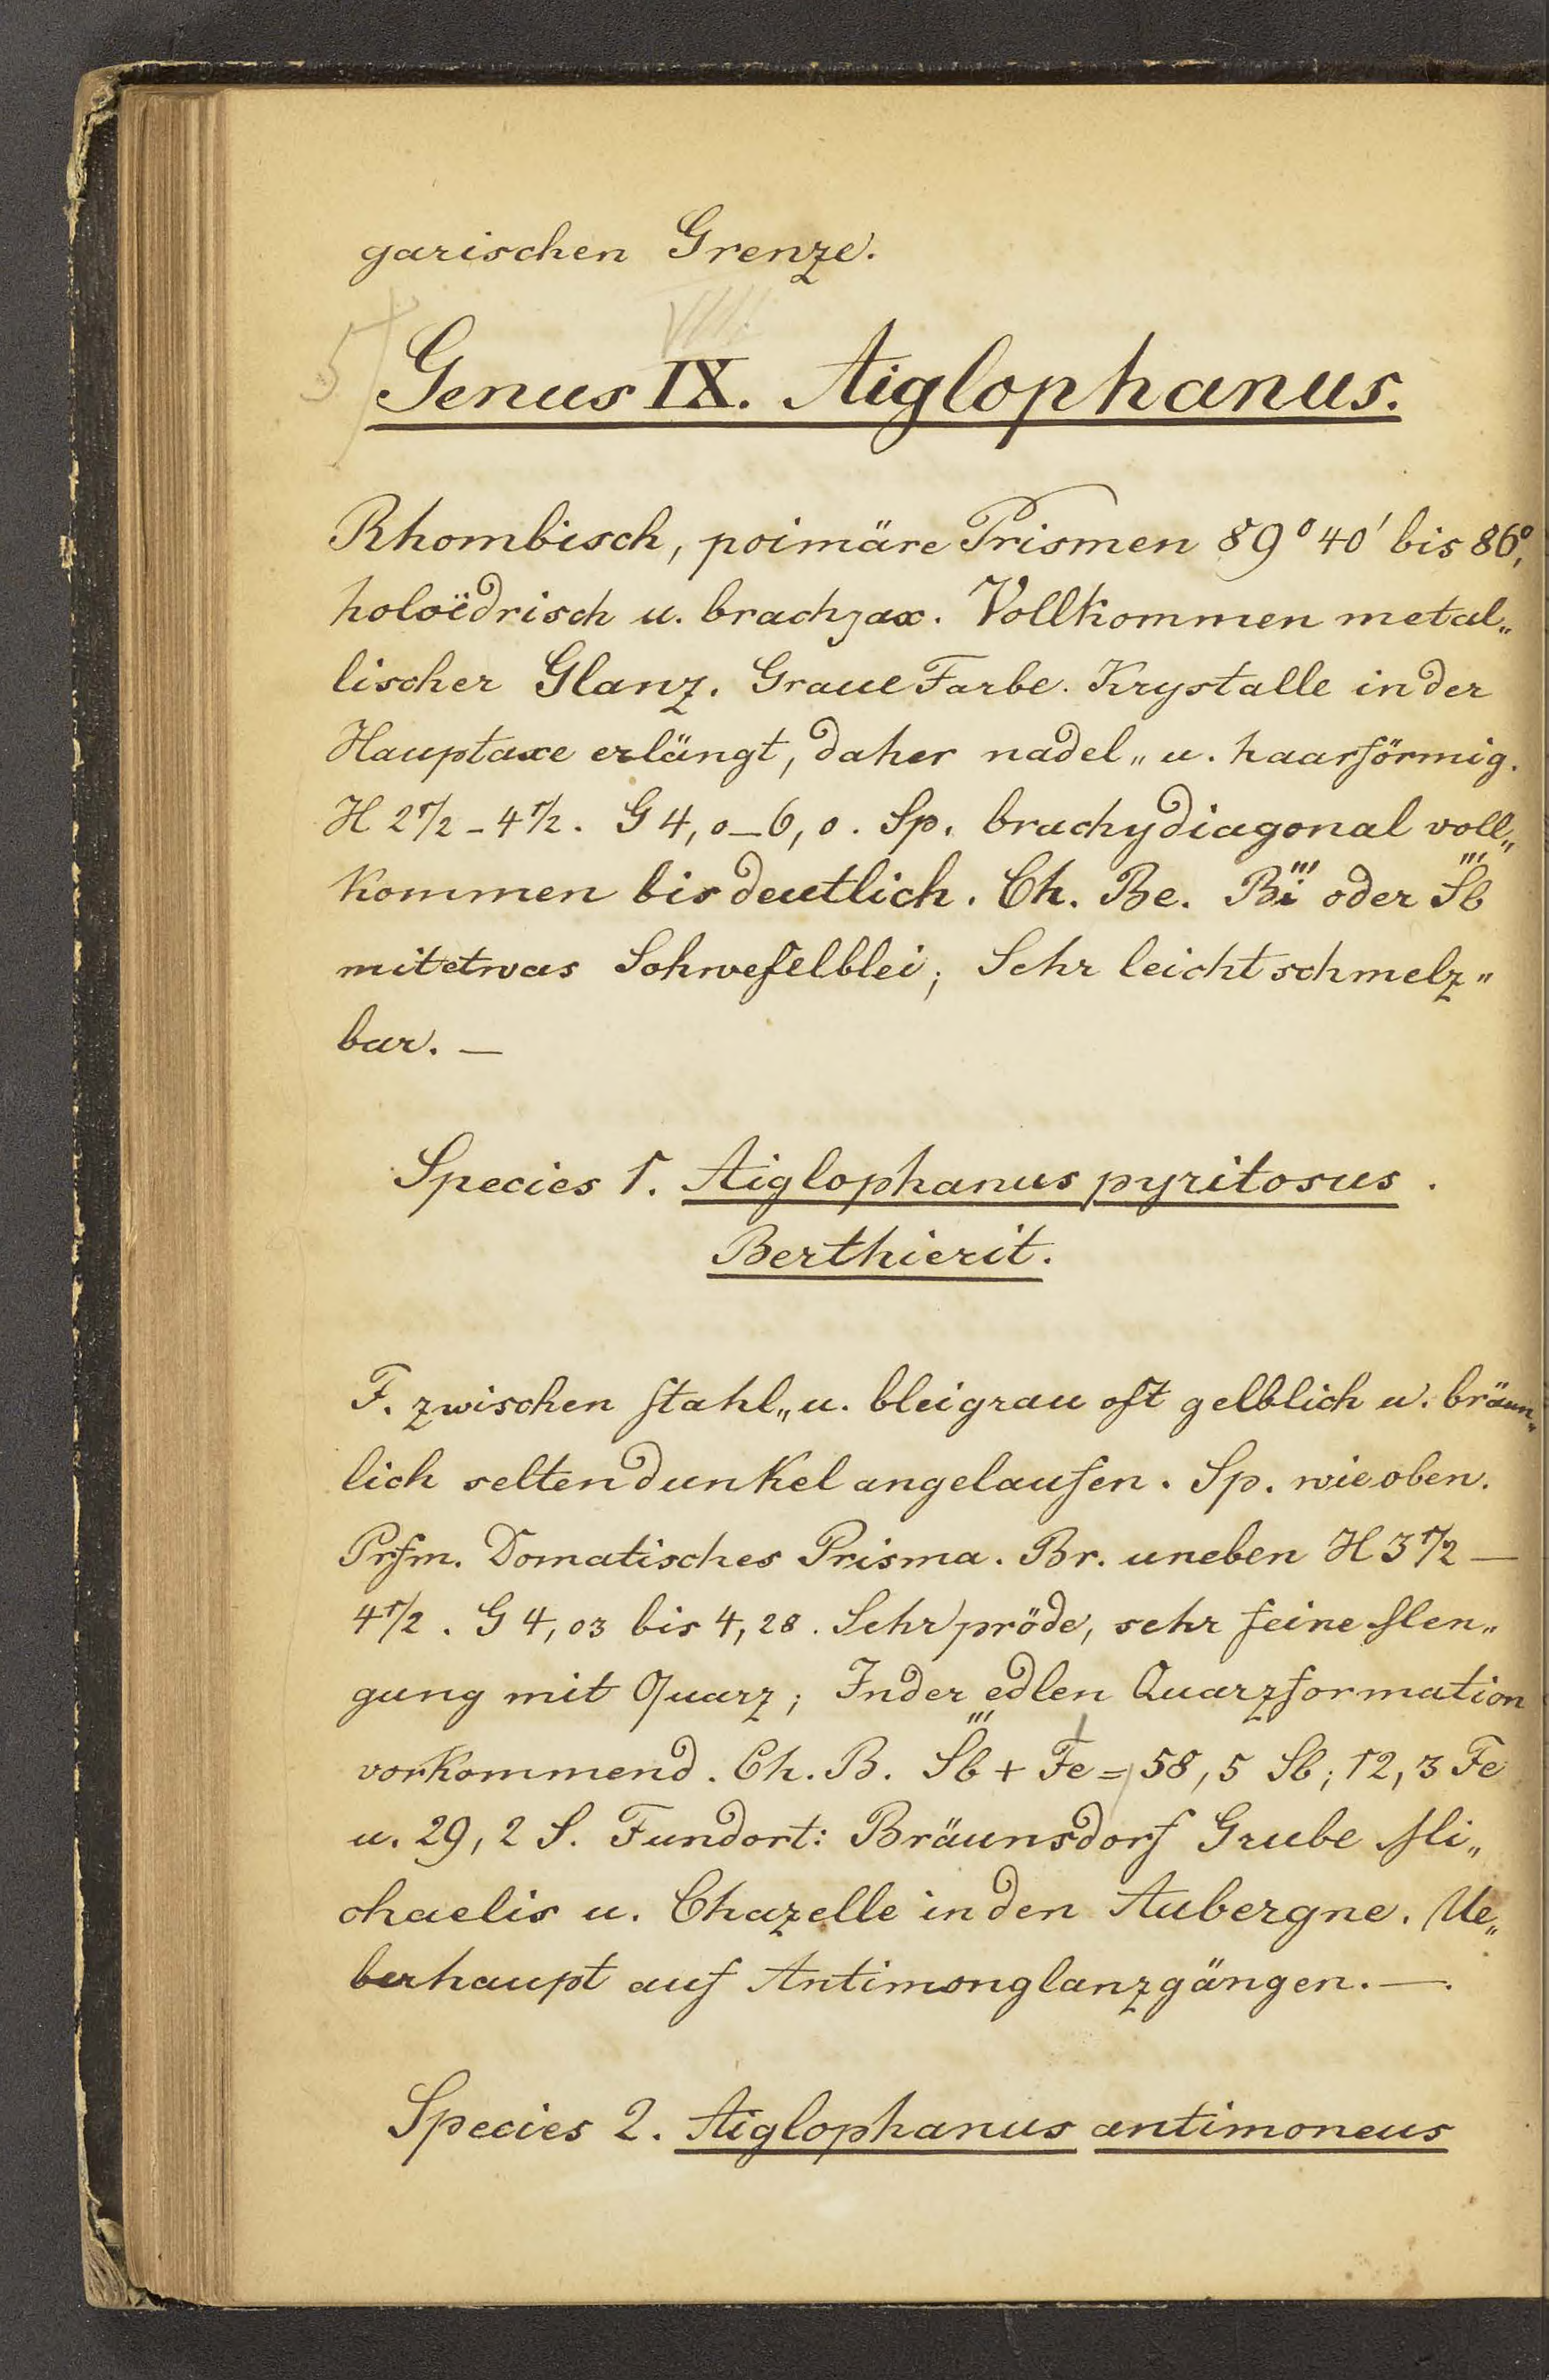 garischen Grenze.
VIII.
5
Genus IX. Aiglophanus.
Rhombisch, poimäre Prismen 89° 40' bis 86°,
holoëdrisch u. brachyax. Vollkommen metal„
lischer Glanz. Graue Farbe. Krystalle in der
Hauptaxe erlängt, daher nadel„ u. haarförmig.
H 2 1/2 - 4 1/2. G 4,0 - 6,0. Sp. brachydiagonal voll„
kommen bis deutlich. Ch. Be. B̈i''' oder S̈b'''
mit etwas Schwefelblei; Sehr leicht schmelz„
bar. —
Species 1. Aiglophanus pyritosus.
Berthierit.
F. zwischen stahl„ u. bleigrau oft gelblich u. bräun„
lich selten dunkel angelaufen. Sp. wie oben.
Prfm. Domatisches Prisma. Br. uneben H 3 1/2 —
4 1/2. G 4,03 bis 4,28. Sehr spröde, sehr feine Men„
gung mit Quarz; In der edlen Quarzformation
vorkommend. Ch. B. Sb''' + Fe' = 58,5 Sb; 12,3 Fe
u. 29,2 S. Fundort: Bräunsdorf Grube Mi„
chaelis u. Chazelle in den Aubergne. Ue„
berhaupt auf Antimonglanzgängen. —.
Species 2. Aiglophanus antimoneus